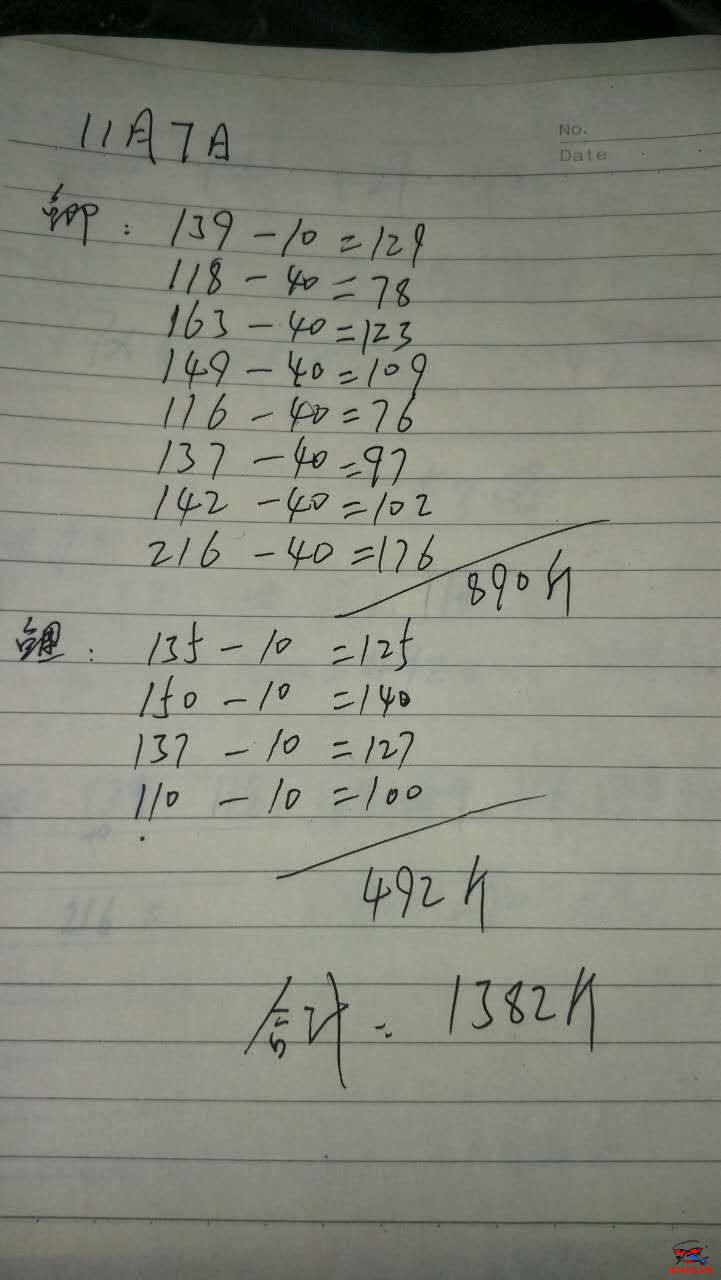 11月7日
No.
Date
139-10=129
118-40=78
163-40=123
149-40=109
116-40=76
137-40=97
142-40=102
216-40=176
890斤
鲤：135-10=125
150-10=140
137-10=127
110-10=100
492斤
合计：1382斤